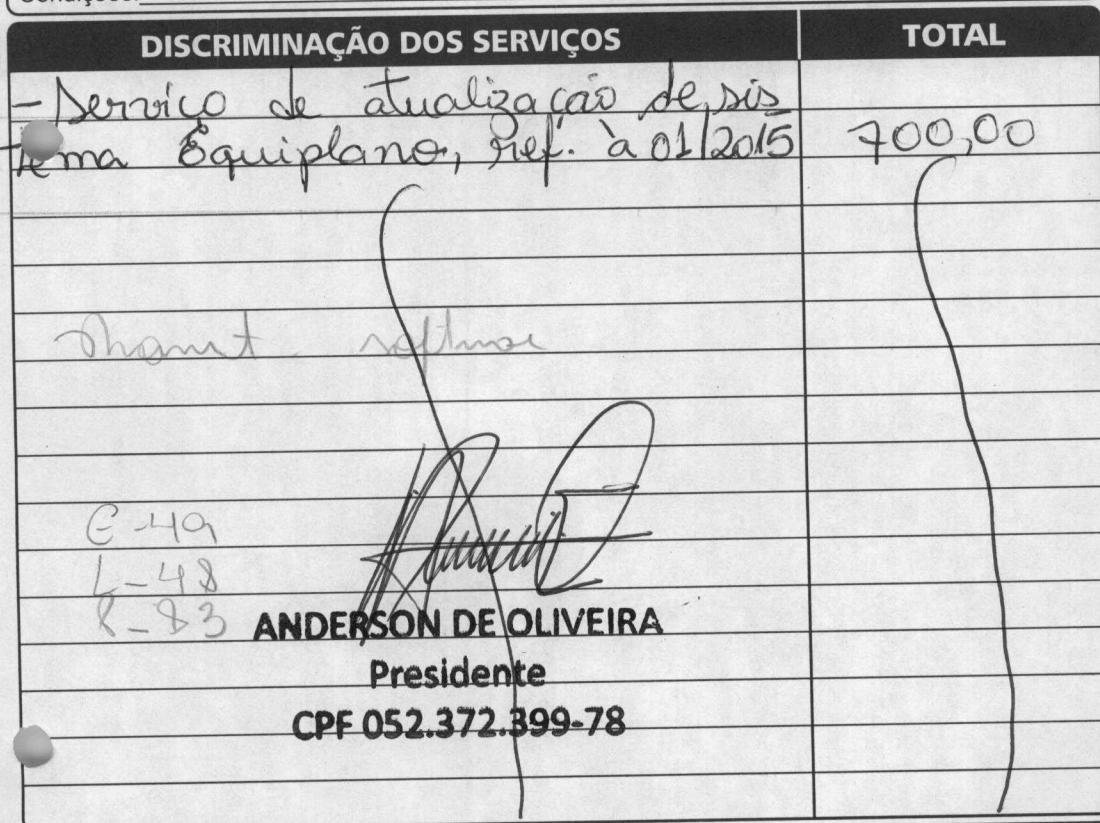 DISCRIMINAÇÃO DOS SERVIÇOS TOTAL
- Serviço de atualização de sis
tema Equiplano, ref. à 01/2015 700,00
software
E-49
L-48
R-83
ANDERSON DE OLIVEIRA
Presidente
CPF 052.372.399-78